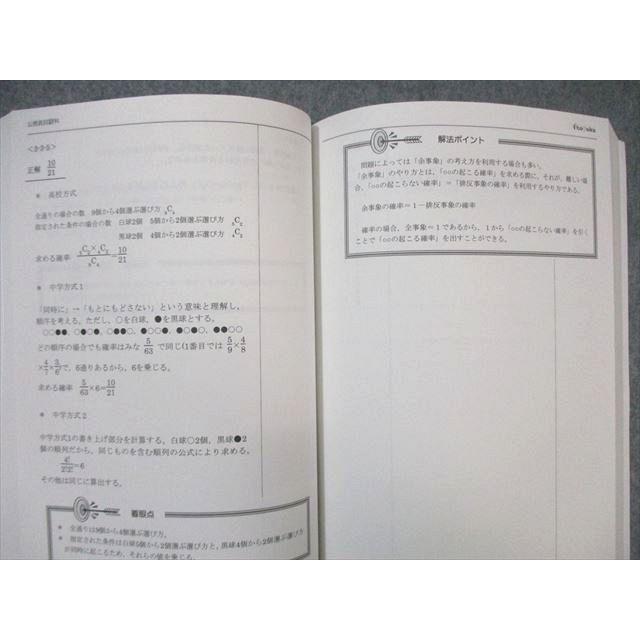 公務員試験科
<3-3-5>
正解 10/21
* 高校方式
全通りの場合の数 9個から4個選ぶ選び方 ₉C₄
指定された条件の場合の数 白球2個 5個から2個選ぶ選び方 ₅C₂
黒球2個 4個から2個選ぶ選び方 ₄C₂
求める確率 ₅C₂×₄C₂/₉C₄=10/21
* 中学方式1
「同時に」→「もとにもどさない」という意味と理解し、
順序を考える。ただし、○を白球、●を黒球とする。
○○●●、○●○●、○●●○、●○○●、●○●○、●●○○
どの順序の場合でも確率はみな 5/63 で同じ(1番目では 5/9×4/8
×4/7×3/6)で、6通りあるから、6を乗じる。
求める確率 5/63×6=10/21
* 中学方式2
中学方式1の書き上げ部分を計算する。白球○2個、黒球●2
個の順列だから、同じものを含む順列の公式により求める。
4!/2!2!=6
その他は同じに算出する。
着眼点
* 全通りは9個から4個選ぶ選び方。
* 指定された条件は白球5個から2個選ぶ選び方と、黒球4個から2個選ぶ選び方
が同時に起こるため、それらの値を乗じる。
解法ポイント
問題によっては「余事象」の考え方を利用する場合も多い。
「余事象」のやり方とは、「○○の起こる確率」を求める際に、それが、難しい場
合、「○○の起こらない確率」=「排反事象の確率」を利用するやり方である。
余事象の確率=1-排反事象の確率
確率の場合、全事象=1であるから、1から「○○の起こらない確率」を引く
ことで「○○の起こる確率」を出すことができる。